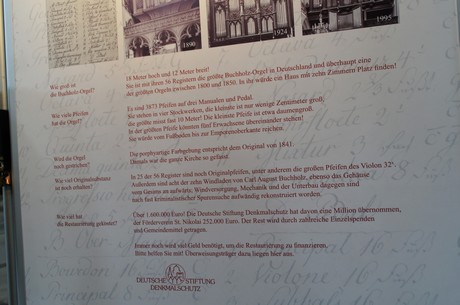 1890
1924
1995
Wie groß ist
die Buchholz-Orgel?
18 Meter hoch und 12 Meter breit!
Sie ist mit ihren 56 Registern die größte Buchholz-Orgel in Deutschland und überhaupt eine
der größten Orgeln zwischen 1800 und 1850. In ihr würde ein Haus mit zehn Zimmern Platz finden!
Wie viele Pfeifen
hat die Orgel?
Es sind 3873 Pfeifen auf drei Manualen und Pedal.
Sie stehen in vier Stockwerken, die kleinste ist nur wenige Zentimeter groß,
die größte misst fast 10 Meter! Die kleinste Pfeife ist etwa daumengroß.
In der größten Pfeife könnten fünf Erwachsene übereinander stehen!
Sie würde vom Fußboden bis zur Emporenoberkante reichen.
Wird die Orgel
noch gestrichen?
Die porphyrartige Farbgebung entspricht dem Original von 1841.
Damals war die ganze Kirche so gefasst.
Wie viel Originalsubstanz
ist noch erhalten?
In 25 der 56 Register sind noch Originalpfeifen, unter anderem die großen Pfeifen des Violon 32'.
Außerdem sind acht der zehn Windladen von Carl August Buchholz, ebenso das Gehäuse
sehr Genau an aufwärts. Windversorgung, Mechanik und der Unterbau dagegen sind
nach fast kriminalistischer Spurensuche aufwändig rekonstruiert worden.
Wie viel hat
die Restaurierung gekostet?
Über 1.600.000 Euro! Die Deutsche Stiftung Denkmalschutz hat davon eine Million übernommen,
der Förderverein St. Nikolai 252.000 Euro. Der Rest wird durch zahlreiche Einzelspenden
und Gemeindemittel getragen.
Immer noch wird viel Geld benötigt, um die Restaurierung zu finanzieren.
Bitte helfen Sie mit! Überweisungsträger dazu liegen hier aus.
DEUTSCHE STIFTUNG
DENKMALSCHUTZ
Bourdon 16
Violone 16
Principal